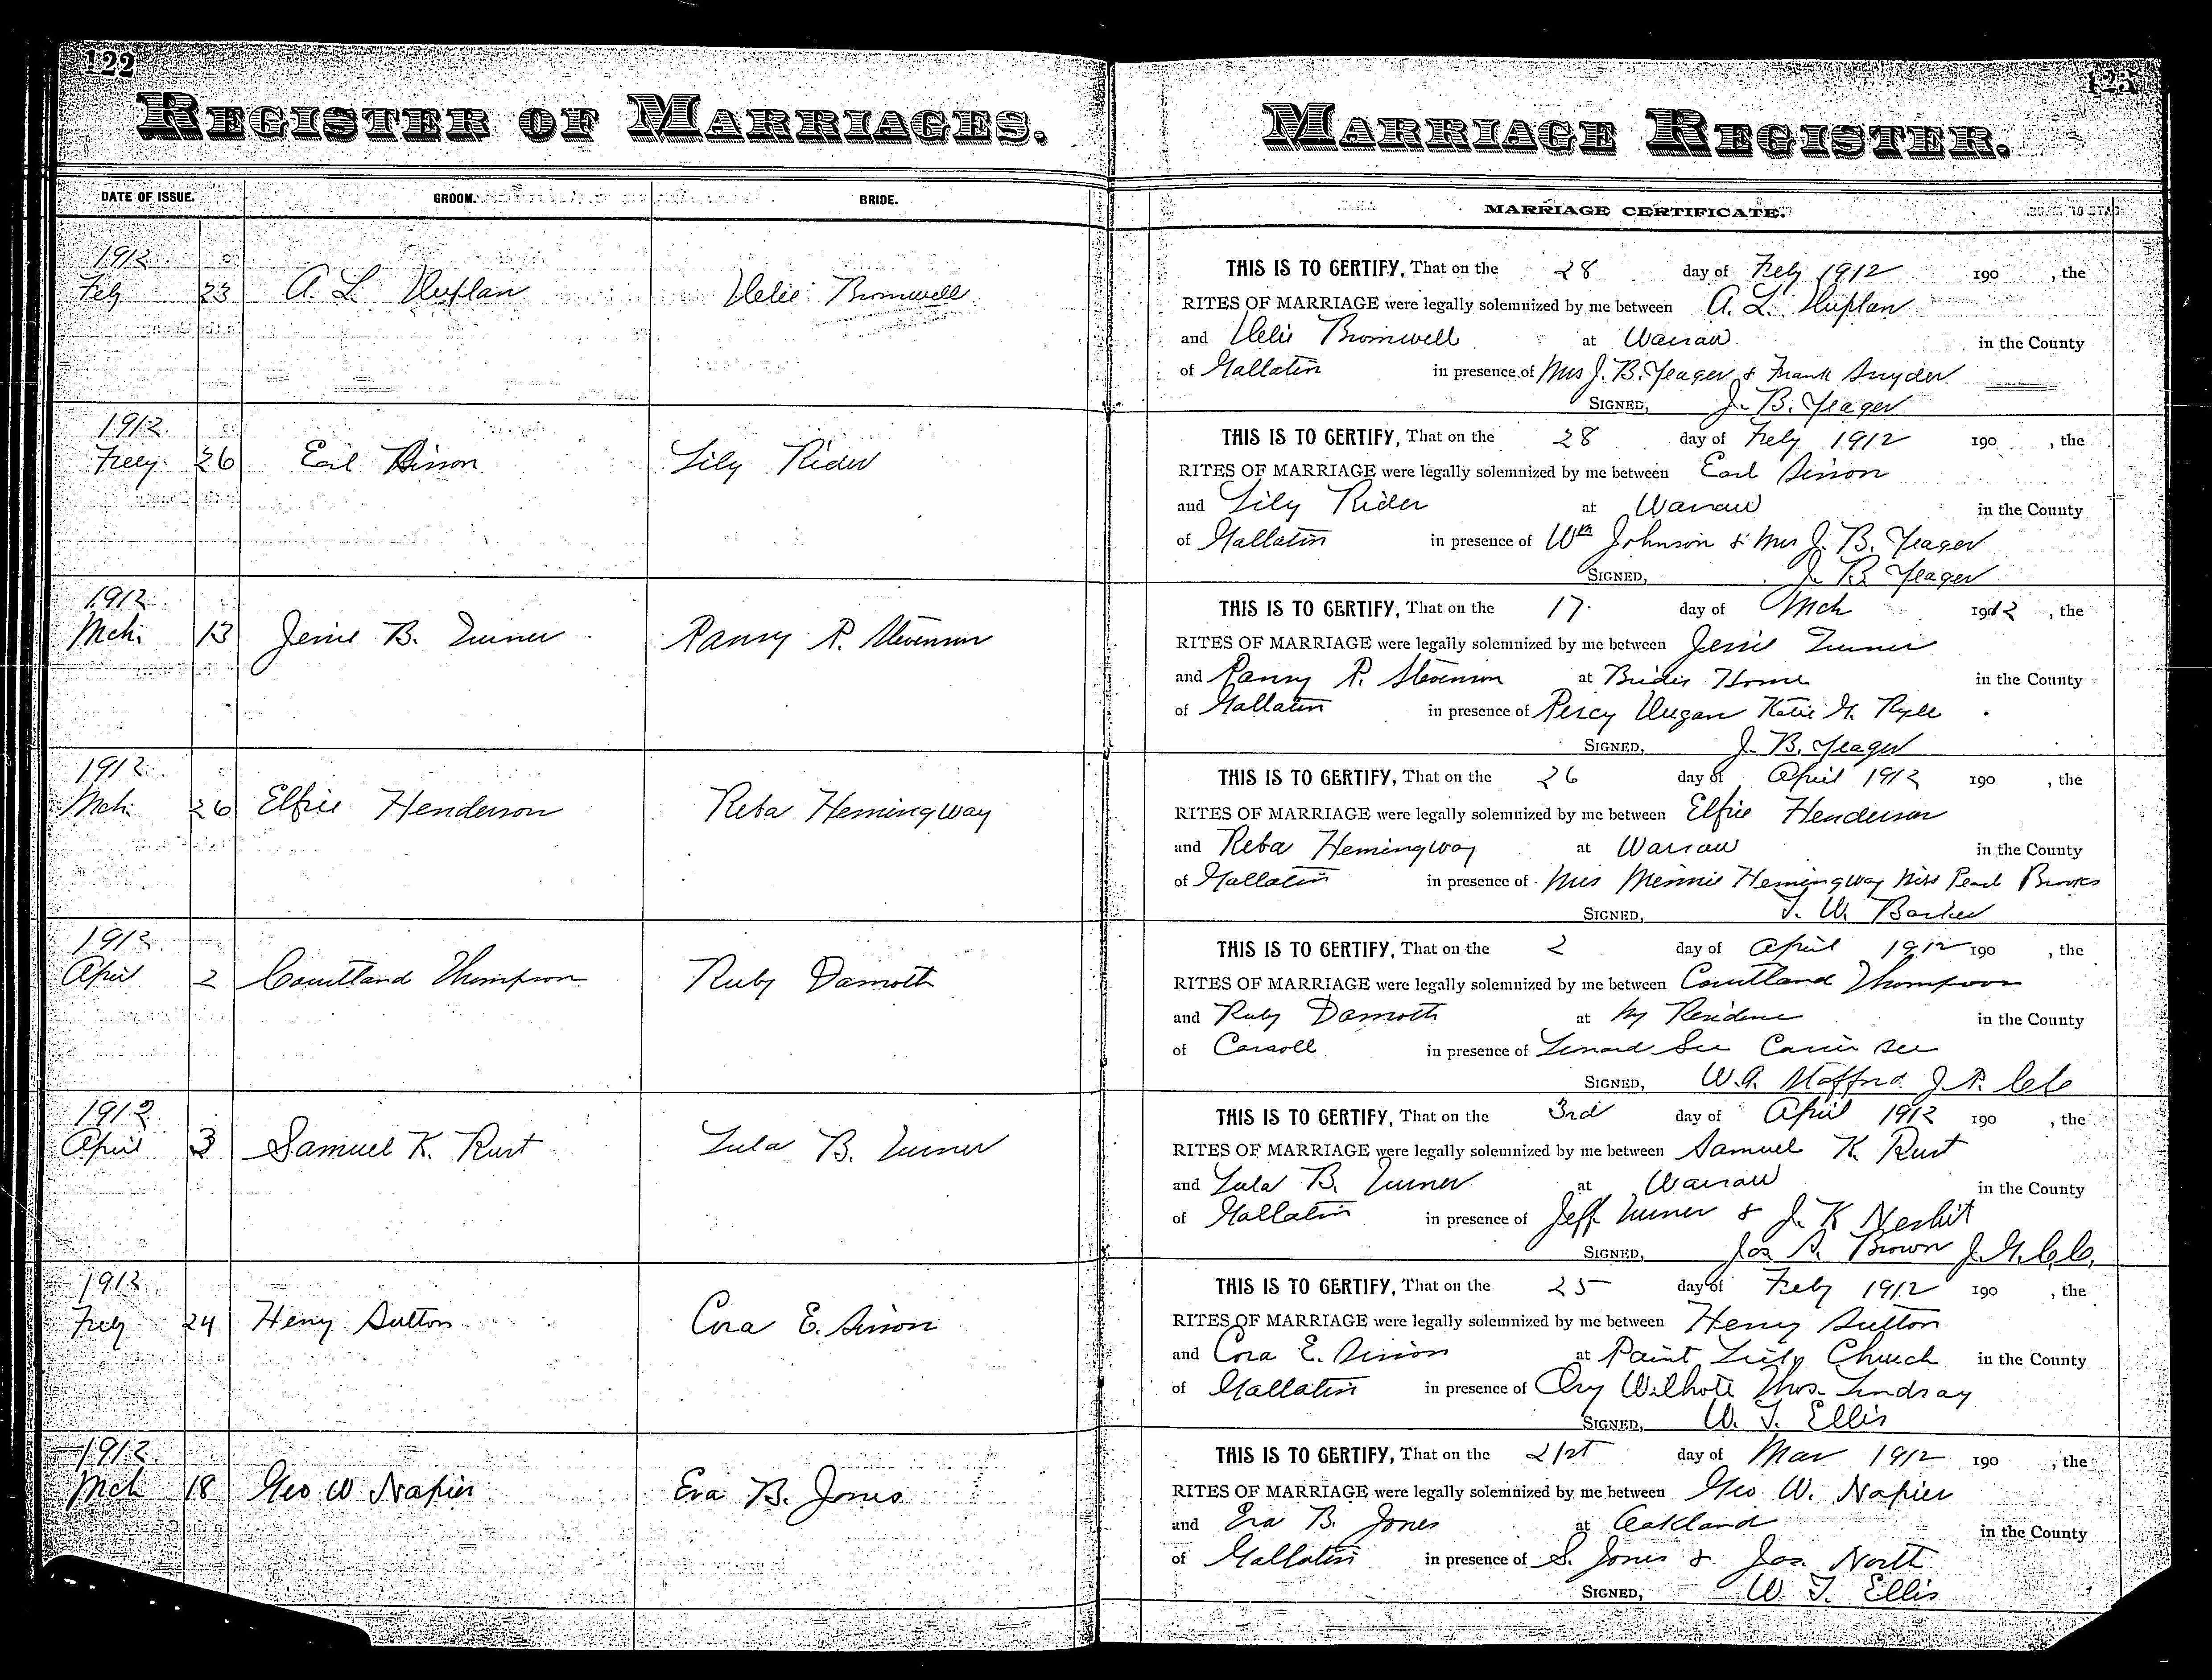 122
REGISTER OF MARRIAGES.
DATE OF ISSUE. GROOM. BRIDE.
1912
Feby 23 A. L. Bromwell
1912
Feby 26 Earl Lily Rider
1912
Mch. 13 Jessie B. Turner Pansy P. Stevenson
1912
Mch. 26 Elfrie Henderson Reba Hemingway
1912
April 2 Courtland Thompson Ruby Damoth
1912
April 3 Samuel K. Rust Lula B. Turner
1912
Feby 24 Henry Sutton Cora E. Sisson
1912
Mch 18 Geo W Napier Eva B. Jones
123
MARRIAGE REGISTER.
MARRIAGE CERTIFICATE.
THIS IS TO CERTIFY, That on the 28 day of Feby 1912 190 , the
RITES OF MARRIAGE were legally solemnized by me between A. L.
and Bromwell at Warsaw in the County
of Gallatin in presence of Mrs J. B. Yeager & Frank Snyder
SIGNED, J. B. Yeager
THIS IS TO CERTIFY, That on the 28 day of Feby 1912 190 , the
RITES OF MARRIAGE were legally solemnized by me between Earl Sisson
and Lily Rider at Warsaw in the County
of Gallatin in presence of Wm Johnson & Mrs J. B. Yeager
SIGNED, J. B. Yeager
THIS IS TO CERTIFY, That on the 17 day of Mch 1912 , the
RITES OF MARRIAGE were legally solemnized by me between Jessie Turner
and Pansy P. Stevenson at Brides Home in the County
of Gallatin in presence of Percy Dugan Katie G. Ryle
SIGNED, J. B. Yeager
THIS IS TO CERTIFY, That on the 26 day of April 1912 190 , the
RITES OF MARRIAGE were legally solemnized by me between Elfrie Henderson
and Reba Hemingway at Warsaw in the County
of Gallatin in presence of Mrs Minnie Hemingway Miss Pearl Brooks
SIGNED, T. W. Barker
THIS IS TO CERTIFY, That on the 2 day of April 1912 190 , the
RITES OF MARRIAGE were legally solemnized by me between Courtland Thompson
and Ruby Damoth at my Residence in the County
of Carroll in presence of Lenard See Carrie See
SIGNED, W. A. Stafford J. P. C. C.
THIS IS TO CERTIFY, That on the 3rd day of April 1912 190 , the
RITES OF MARRIAGE were legally solemnized by me between Samuel K. Rust
and Lula B. Turner at Warsaw in the County
of Gallatin in presence of Jeff Turner & J. K Nesbit
SIGNED, Jos S. Brown J. G. C. C.
THIS IS TO CERTIFY, That on the 25 day of Feby 1912 190 , the
RITES OF MARRIAGE were legally solemnized by me between Henry Sutton
and Cora E. Sisson at Paint Lick Church in the County
of Gallatin in presence of Ory Wilhoite Thos. Lindsay
SIGNED, W. T. Ellis
THIS IS TO CERTIFY, That on the 21st day of Mar 1912 190 , the
RITES OF MARRIAGE were legally solemnized by me between Geo. W. Napier
and Eva B. Jones at Oakland in the County
of Gallatin in presence of S. Jones & Jas. North
SIGNED, W. T. Ellis